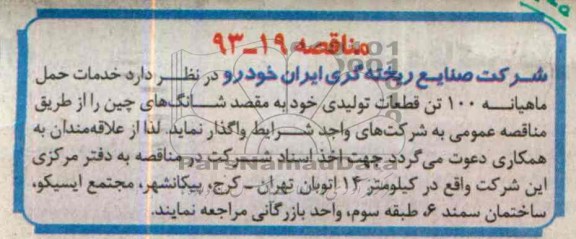 مناقصه ۱۹-۹۳
شرکت صنایع ریخته گری ایران خودرو در نظر دارد خدمات حمل
ماهیانه ۱۰۰ تن قطعات تولیدی خود به مقصد شانگ‌های چین را از طریق
مناقصه عمومی به شرکت‌های واجد شرایط واگذار نماید. لذا از علاقه‌مندان به
همکاری دعوت می‌گردد جهت اخذ اسناد شرکت در مناقصه به دفتر مرکزی
این شرکت واقع در کیلومتر ۱۴ اتوبان تهران ـ کرج، پیکانشهر، مجتمع ایسیکو،
ساختمان سمند ۶، طبقه سوم، واحد بازرگانی مراجعه نمایند.